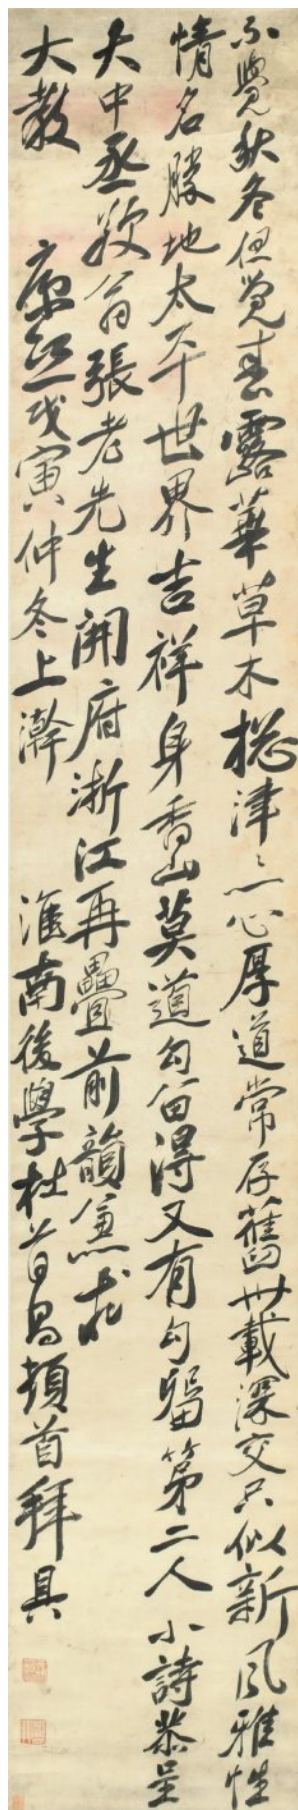 不覺秋冬但覺春露華草木揔津津一心厚道常存舊卅載深交只似新風雅性
情名勝地太平世界吉祥身香山莫道勾留得又有勾留第二人小詩恭呈
大中丞敬翁張老先生開府浙江再疊前韻兼求
大教 康熙戊寅仲冬上澣 淮南後學杜首昌頓首拜具